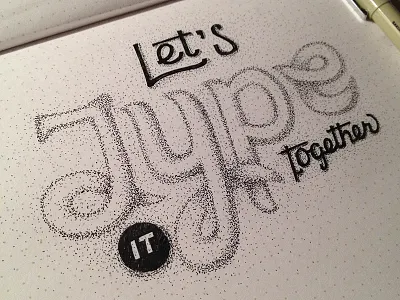 Let's
Type
IT
together